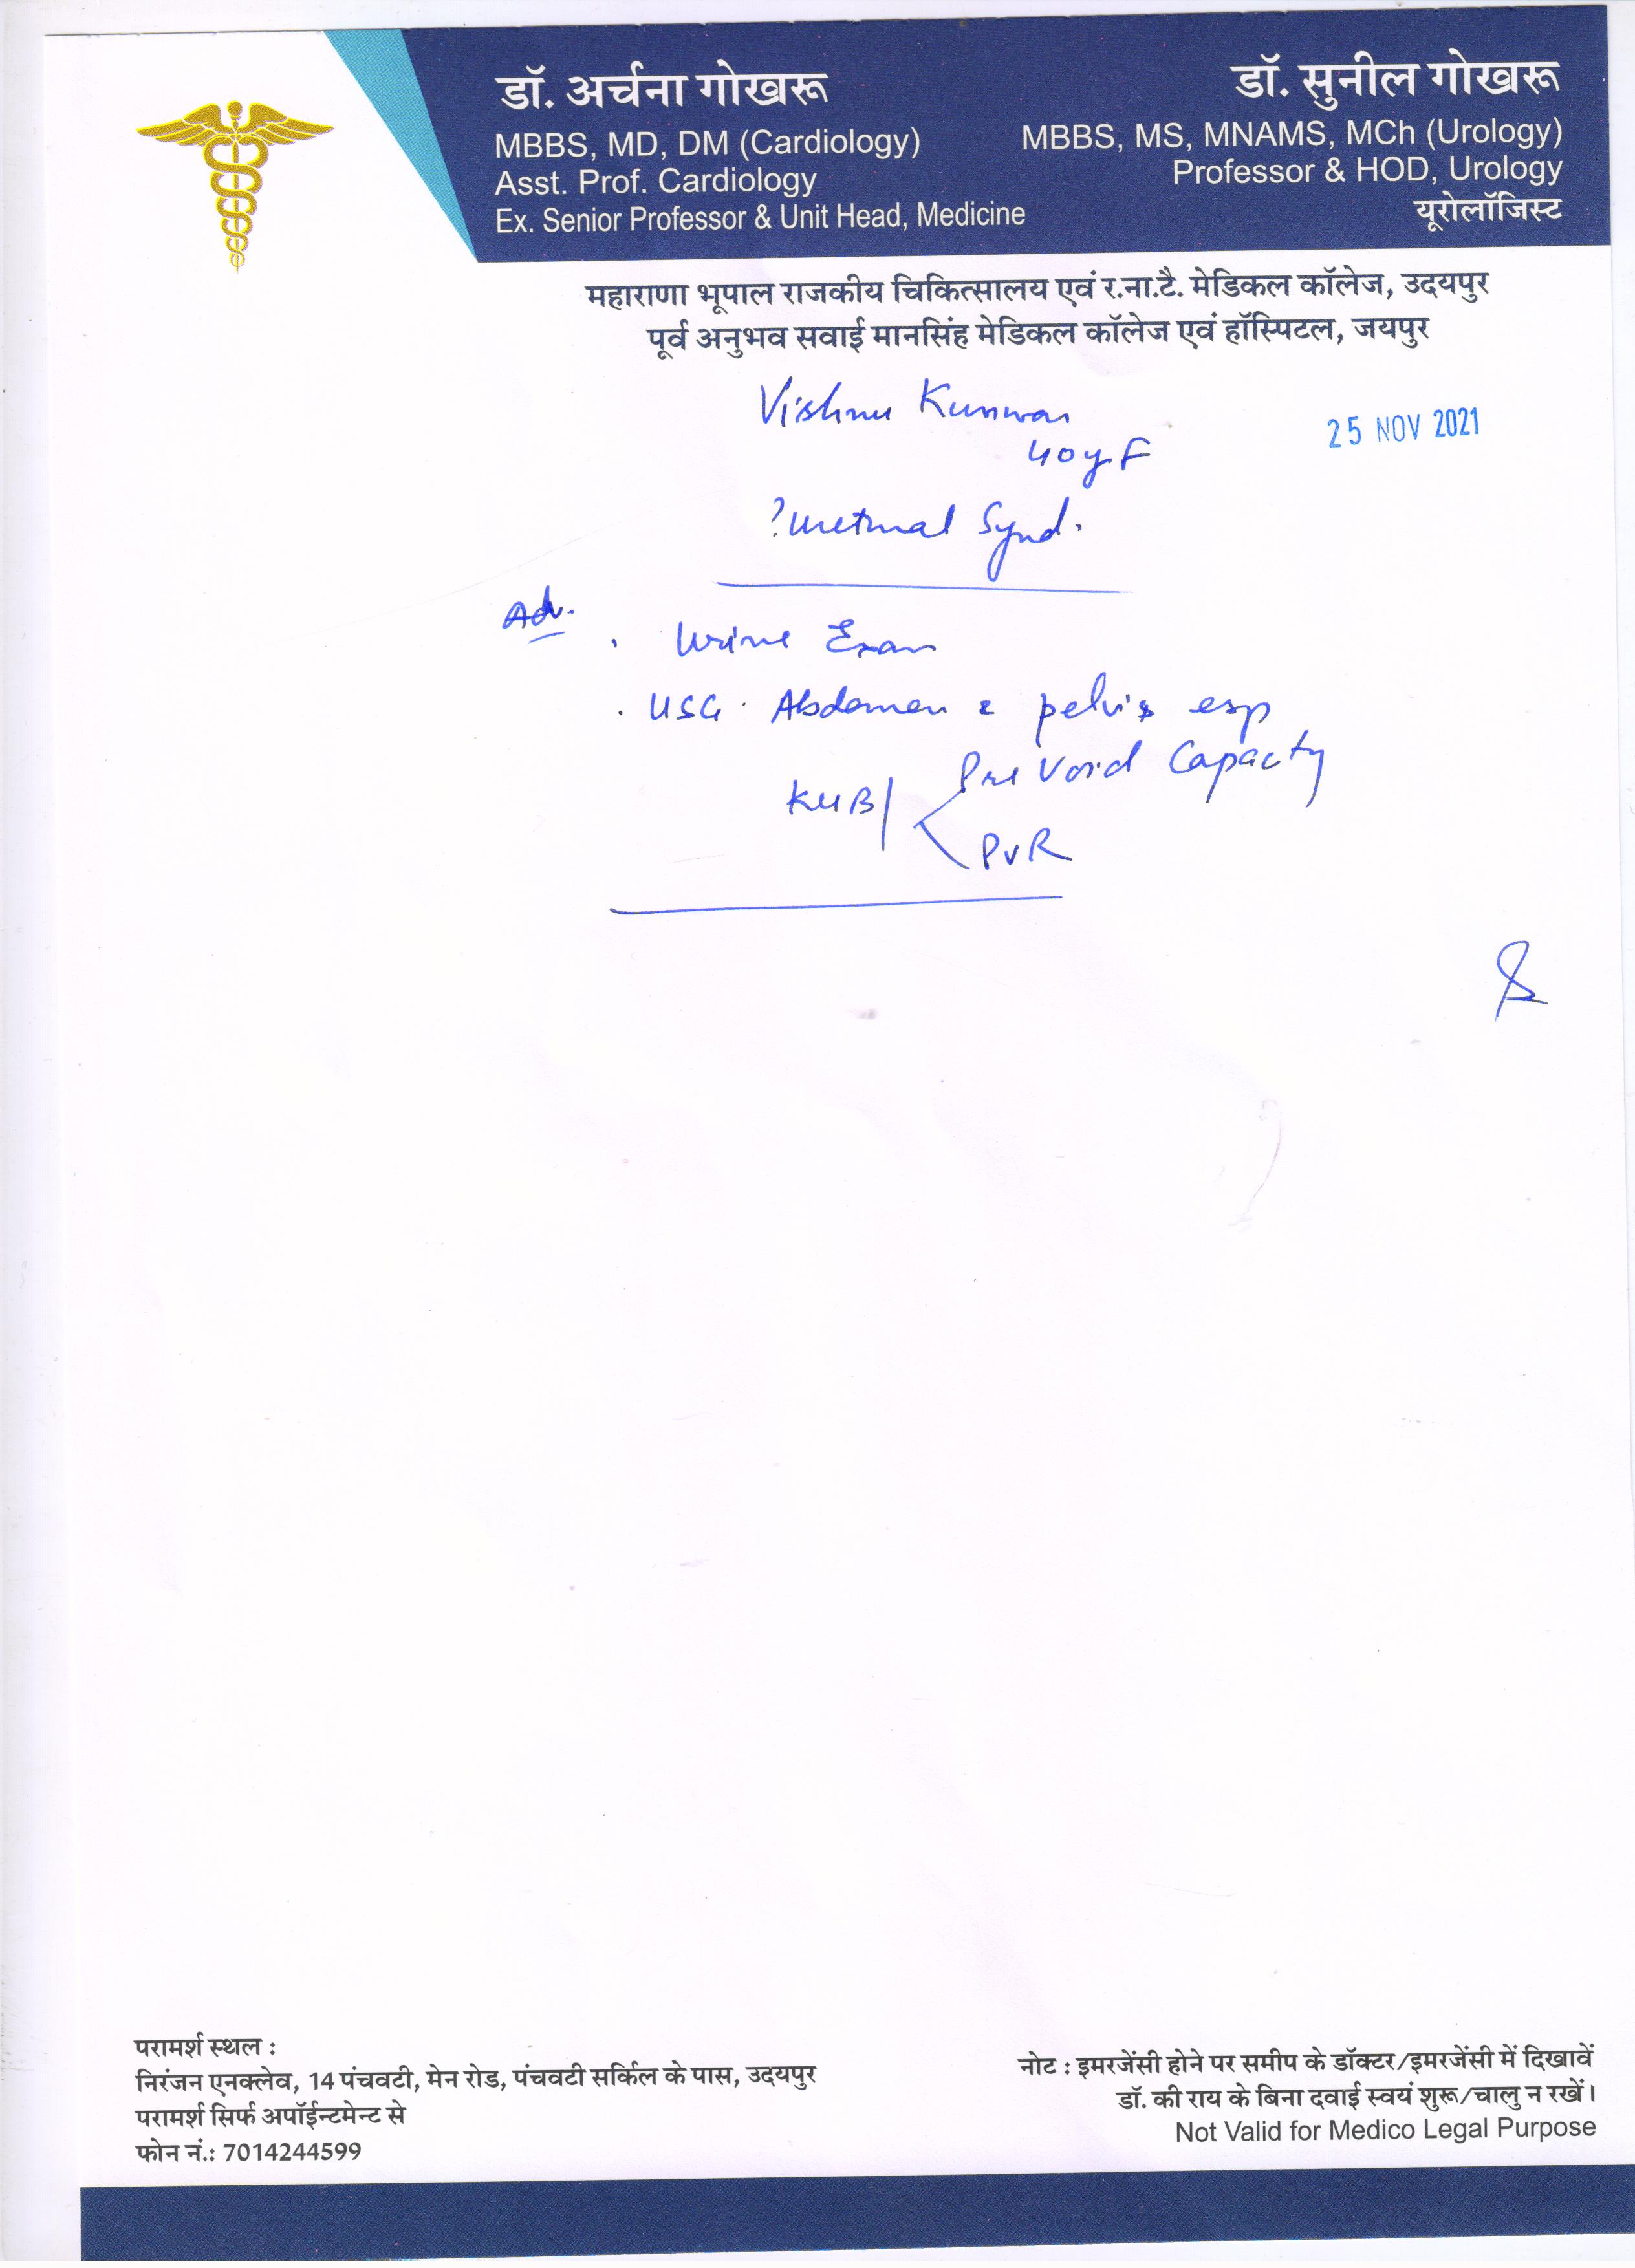 डॉ. अर्चना गोखरू
MBBS, MD, DM (Cardiology)
Asst. Prof. Cardiology
Ex. Senior Professor & Unit Head, Medicine
डॉ. सुनील गोखरू
MBBS, MS, MNAMS, MCh (Urology)
Professor & HOD, Urology
यूरोलॉजिस्ट
महाराणा भूपाल राजकीय चिकित्सालय एवं र.ना.टै. मेडिकल कॉलेज, उदयपुर
पूर्व अनुभव सवाई मानसिंह मेडिकल कॉलेज एवं हॉस्पिटल, जयपुर
Vishnu Kunwar
25 NOV 2021
40y F
? Urethral Synd.
Adv.
. Urine Exam
. USG. Abdomen & pelvis esp
Pre Void Capacity
KUB/
PVR
परामर्श स्थल :
निरंजन एनक्लेव, 14 पंचवटी, मेन रोड, पंचवटी सर्किल के पास, उदयपुर
परामर्श सिर्फ अपॉईन्टमेन्ट से
फोन नं.: 7014244599
नोट : इमरजेंसी होने पर समीप के डॉक्टर/इमरजेंसी में दिखावें
डॉ. की राय के बिना दवाई स्वयं शुरू/चालु न रखें।
Not Valid for Medico Legal Purpose